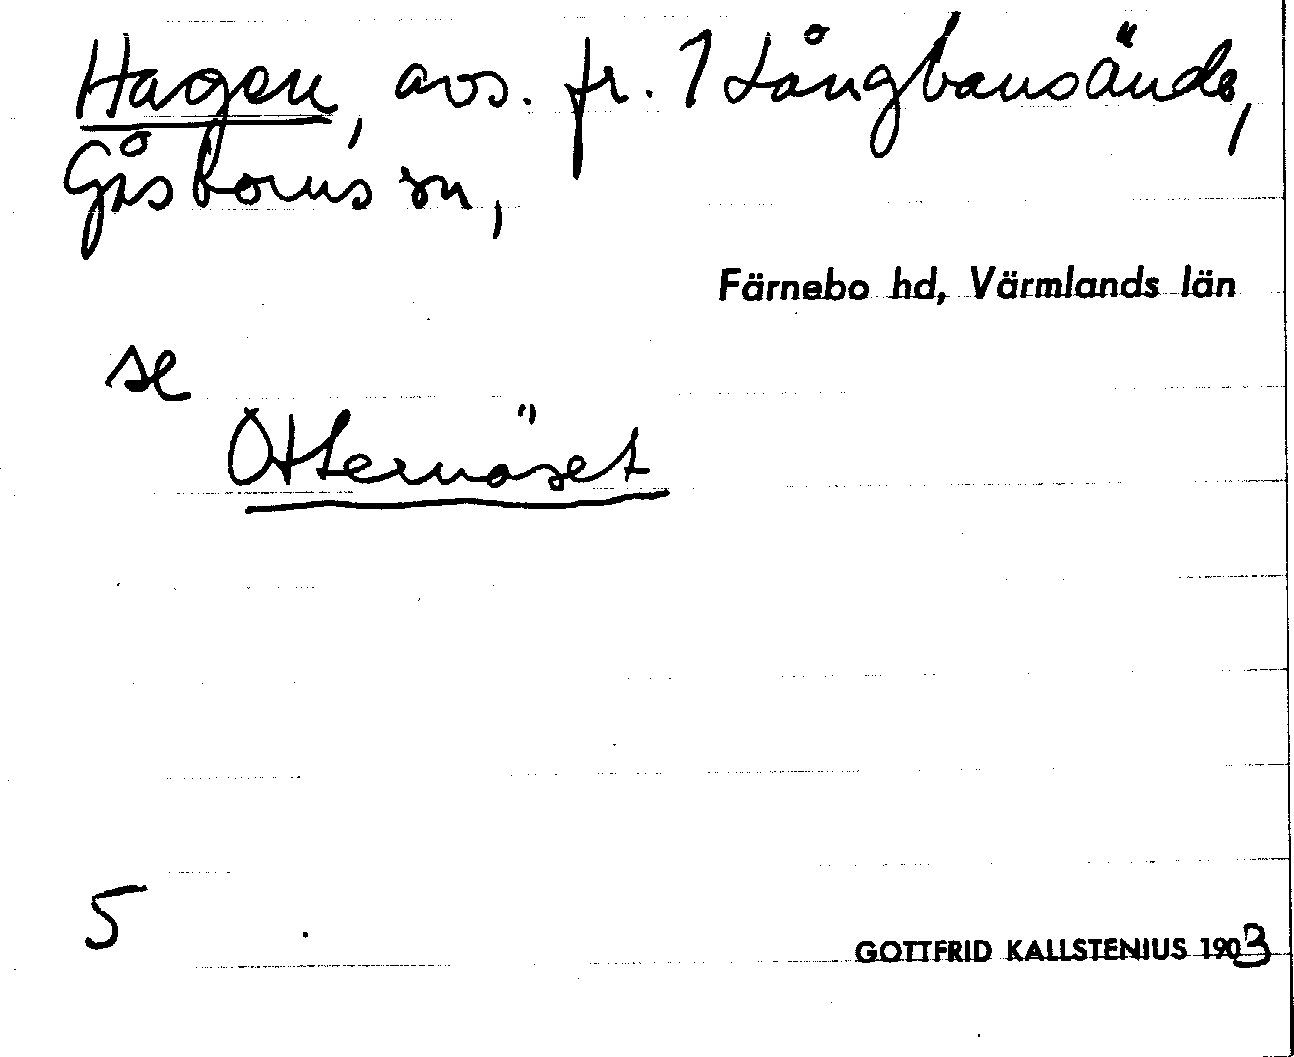 Hagen, avs. fr. 1 Långbansände,
Gåsborns sn,
Färnebo hd, Värmlands län
se
Otternäset
5
GOTTFRID KALLSTENIUS 1903